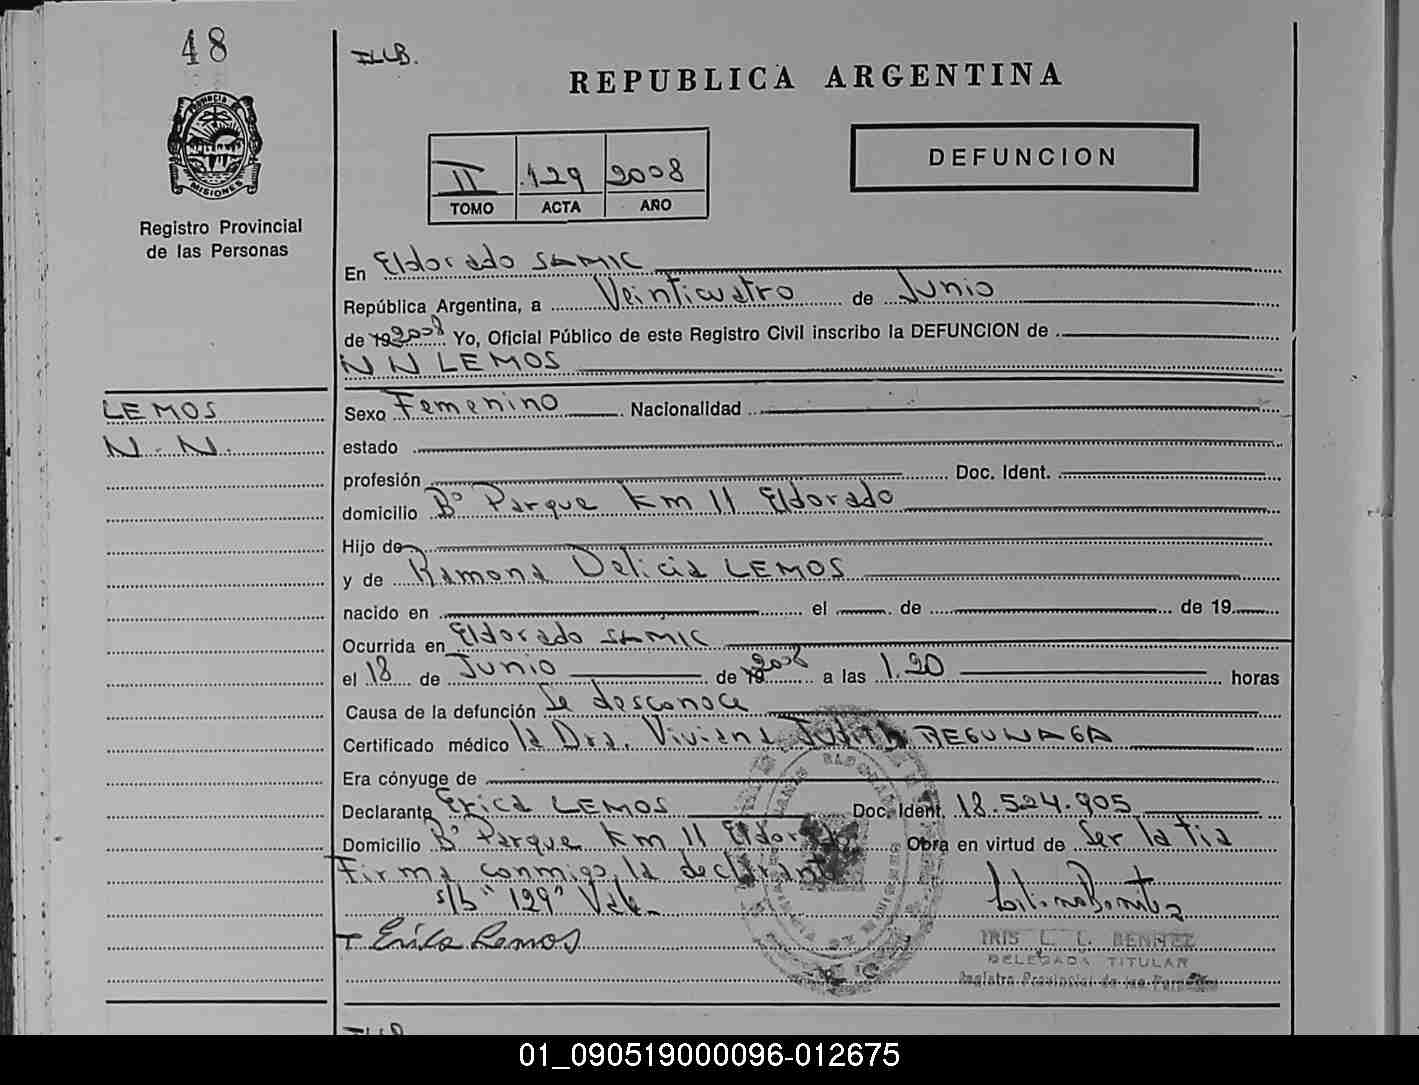 48
ILLB.
REPUBLICA ARGENTINA
PROVINCIA DE
MISIONES
Registro Provincial
de las Personas
II 129 2008
TOMO ACTA AÑO
DEFUNCION
En Eldorado SAMIC
República Argentina, a Veinticuatro de Junio
de 19 2008 Yo, Oficial Público de este Registro Civil inscribo la DEFUNCION de
N N LEMOS
LEMOS
N. N.
Sexo Femenino Nacionalidad
estado
profesión Doc. Ident.
domicilio Bº Parque Km 11 Eldorado
Hijo de
y de Ramona Delicia LEMOS
nacido en el de de 19
Ocurrida en Eldorado SAMIC
el 18 de Junio de 19 2008 a las 1.20 horas
Causa de la defunción Se desconoce
Certificado médico la Dra. Viviana Judith REGUNAGA
Era cónyuge de
Declarante Erica LEMOS Doc. Ident. 18.524.905
Domicilio Bº Parque Km 11 Eldorado Obra en virtud de Ser la tia
Firma conmigo la declarante
s/b "129" Vale
Erica Lemos
IRIS L. L. BENITEZ
DELEGADA TITULAR
Registro Provincial de las Personas
ILLB
01_090519000096-012675